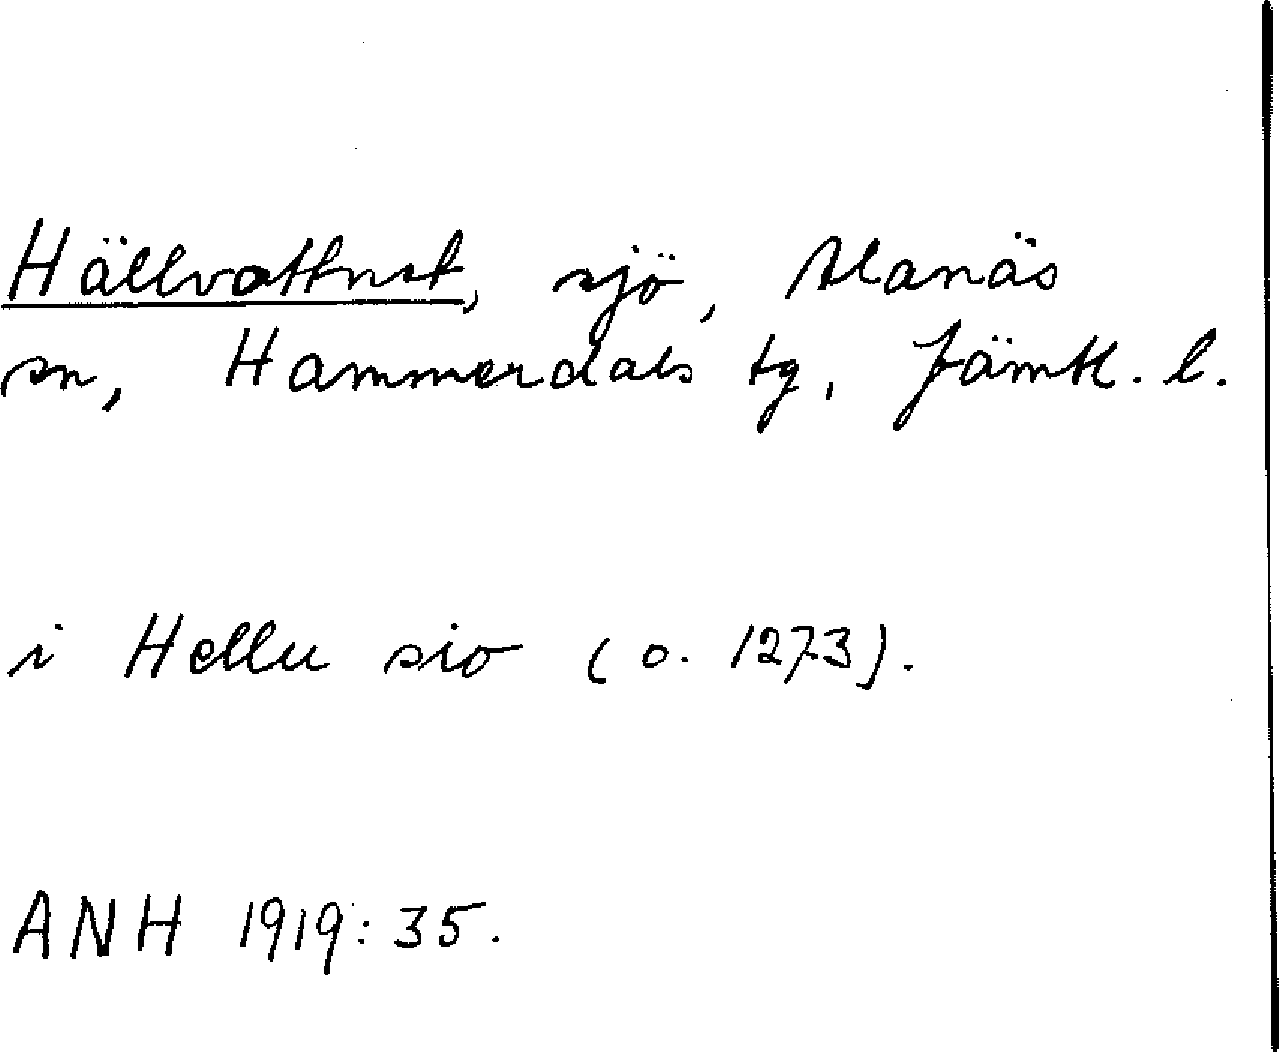 Hällvattnet, sjö, Alanäs
sn, Hammerdals tg, Jämtl. l.
i Hellu sio (o. 1273).
ANH 1919:35.